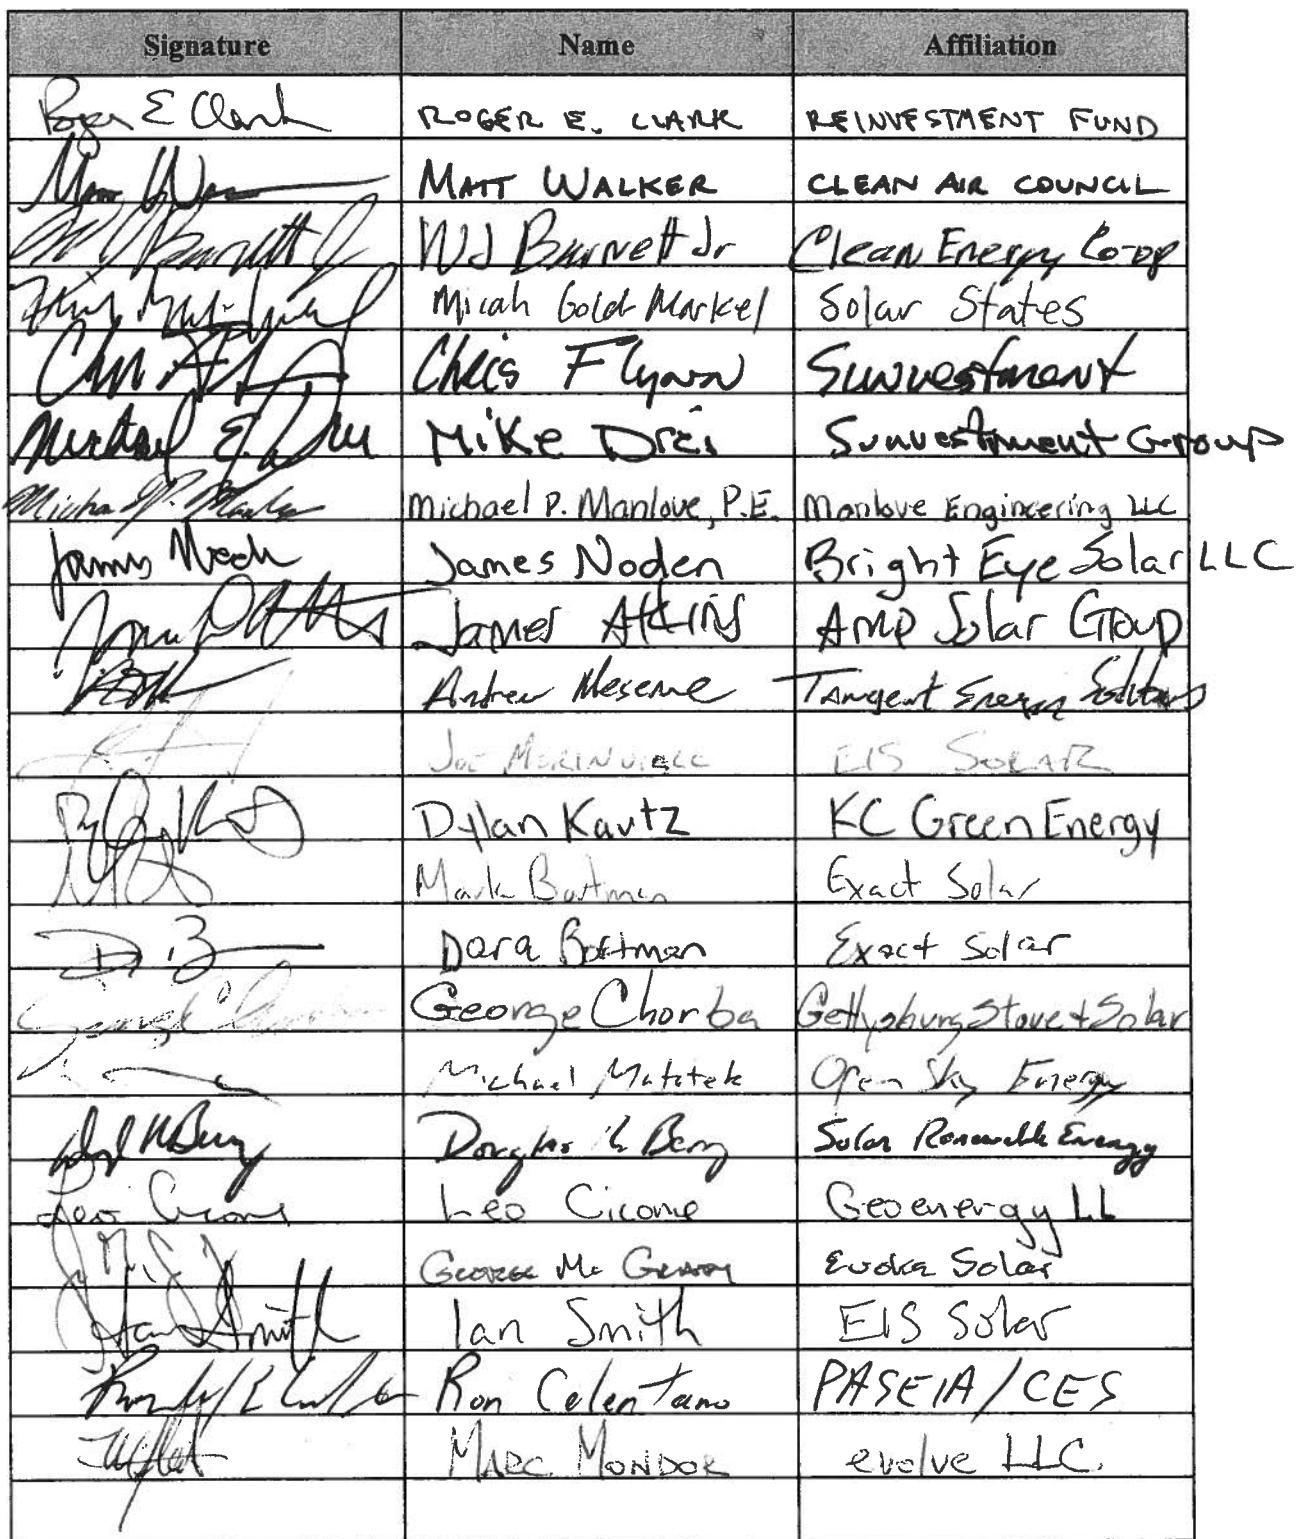 Signature Name Affiliation
Roger E Clark ROGER E. CLARK REINVESTMENT FUND
MATT WALKER CLEAN AIR COUNCIL
WJ Burnett Jr WJ Burnett Jr Clean Energy Co-op
Micah Gold-Markel Solar States
Chris Flynn Sunvestment
Michael E. Drei Mike Drei Sunvestment Group
Michael P. Manlove Michael P. Manlove, P.E. Manlove Engineering LLC
James Noden James Noden Bright Eye Solar LLC
James Atkins Amp Solar Group
Andrew Meserve Tangent Energy Solutions
Joe EIS SOLAR
Dylan Kautz KC Green Energy
Mark Bortman Exact Solar
Dara Bortman Exact Solar
George Chorba George Chorba Gettysburg Stove + Solar
Michael Open Sky Energy
Douglas Berry Solar Renewable Energy
Leo Cicone Leo Cicone Geoenergy LL
GEORGE Mc Evoke Solar
Ian Smith Ian Smith EIS Solar
Ron Celentano PASEIA/CES
MARC MONDOR evolve LLC.